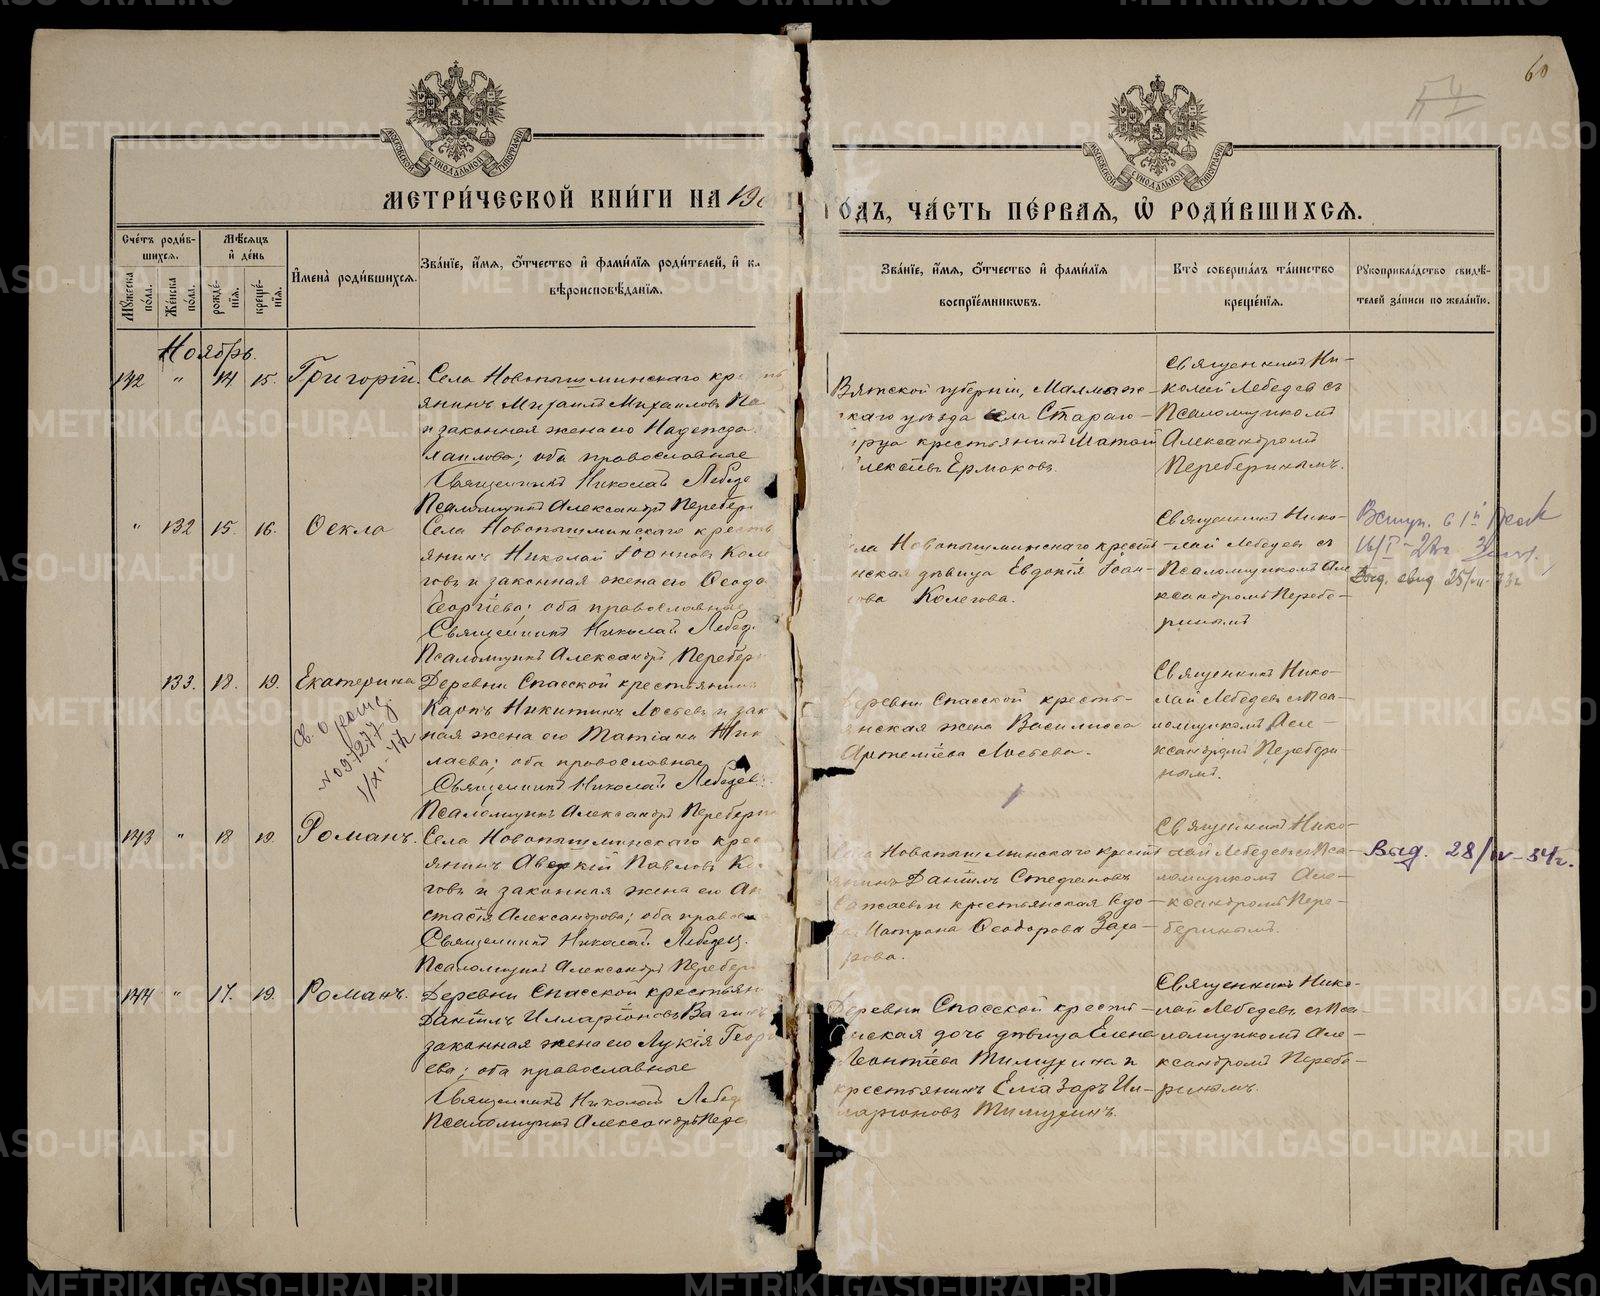 60
МЕТРИ́ЧЕСКОЙ КНИ́ГИ НА 19
ОДЪ, ЧА́СТЬ ПЕ́РВАЯ, Ѡ РОДИ́ВШИХСЯ.
Сче́тъ роди́в-
шихся.
Мѣ́сяцъ
и҆ де́нь
Му́жеска
по́ла.
Же́нска
по́ла.
рожде́-
нїя.
креще́-
нїя.
И҆мена̀ роди́вшихся.
Зва́нїе, и҆́мя, ѻ҆́тчество и҆ фами́лїя роди́телей, и҆ к
вѣроисповѣ́данїя.
Зва́нїе, и҆́мя, ѻ҆́тчество и҆ фами́лїя
воспрїе́мникѡвъ.
Кто̀ соверша́лъ та́инство
креще́нїя.
Рꙋкоприкла́дство свидѣ́-
телей за́писи по жела́нїю.
Ноябрь.
142 " 14 15. Григорій.
Села Новопышминскаго кр
янинъ Михаилъ Михаиловъ
и законная жена его Надежда
; оба православные
Священникъ Николай Лебеде
Псаломщикъ Александръ Перебер
Вятской губерніи, Малмыж-
скаго уѣзда села Стараго
крестьянинъ Матѳ
лексѣевъ Ермаковъ.
Священникъ Ни-
колай Лебедевъ съ
Псаломщикомъ
Александромъ
Переберинымъ.
" 132 15 16. Ѳекла
Села Новопышминскаго кресть
янинъ Николай Іоанновъ Кол
говъ и законная жена его Ѳеодо
Георгіева; оба православные
Священникъ Николай Лебед
Псаломщикъ Александръ Перебер
ла Новопышминскаго кресть
нская дѣвица Евдокія Іоан-
нова Колегова.
Священникъ Нико-
лай Лебедевъ съ
Псаломщикомъ Але
ксандромъ Перебе-
ринымъ
Выд. свид 25/
133. 18. 19. Екатерина
Деревни Спасской крестьянинъ
Карпъ Никитинъ Лосевъ и зак
ная жена его Татіана Ник
лаева; оба православные
Священникъ Николай Лебедев
Псаломщикъ Александръ Перебери
еревни Спасской кресть-
янская жена Василисса
Артеміева Лосева.
Священникъ Нико-
лай Лебедевъ съ Пса-
ломщикомъ Але-
ксандромъ Перебери-
нымъ.
143 " 18 19. Романъ.
Села Новопышминскаго крес
янинъ Аверкій Павловъ Ко
говъ и законная жена его Ан
стасія Александрова; оба правосл
Священникъ Николай Лебедев.
Псаломщикъ Александръ Перебер
Новопышминскаго кресть
янинъ Даніилъ Стефановъ
и крестьянская вдо-
Матрона Ѳеодорова Заха-
рова.
Священникъ Нико-
лай Лебедевъ съ Пса-
ломщикомъ Але-
ксандромъ Пере-
беринымъ.
Выд. 28/IV-34г.
144 " 17. 19. Романъ.
Деревни Спасской крестьян
Даніилъ Илларіоновъ Вагинъ
законная жена его Лукія Геор
ева; оба православные
Священникъ Николай Лебед
Псаломщикъ Александръ Пере
Деревни Спасской кресть-
нская дочь дѣвица Елена
Леонтіева Тимурина и
крестьянинъ Еліазаръ Ил-
ларіоновъ Тимуринъ.
Священникъ Нико-
лай Лебедевъ съ Пса-
ломщикомъ Але-
ксандромъ Перебе-
ринымъ.
METRIKI.GASO-URAL.RU